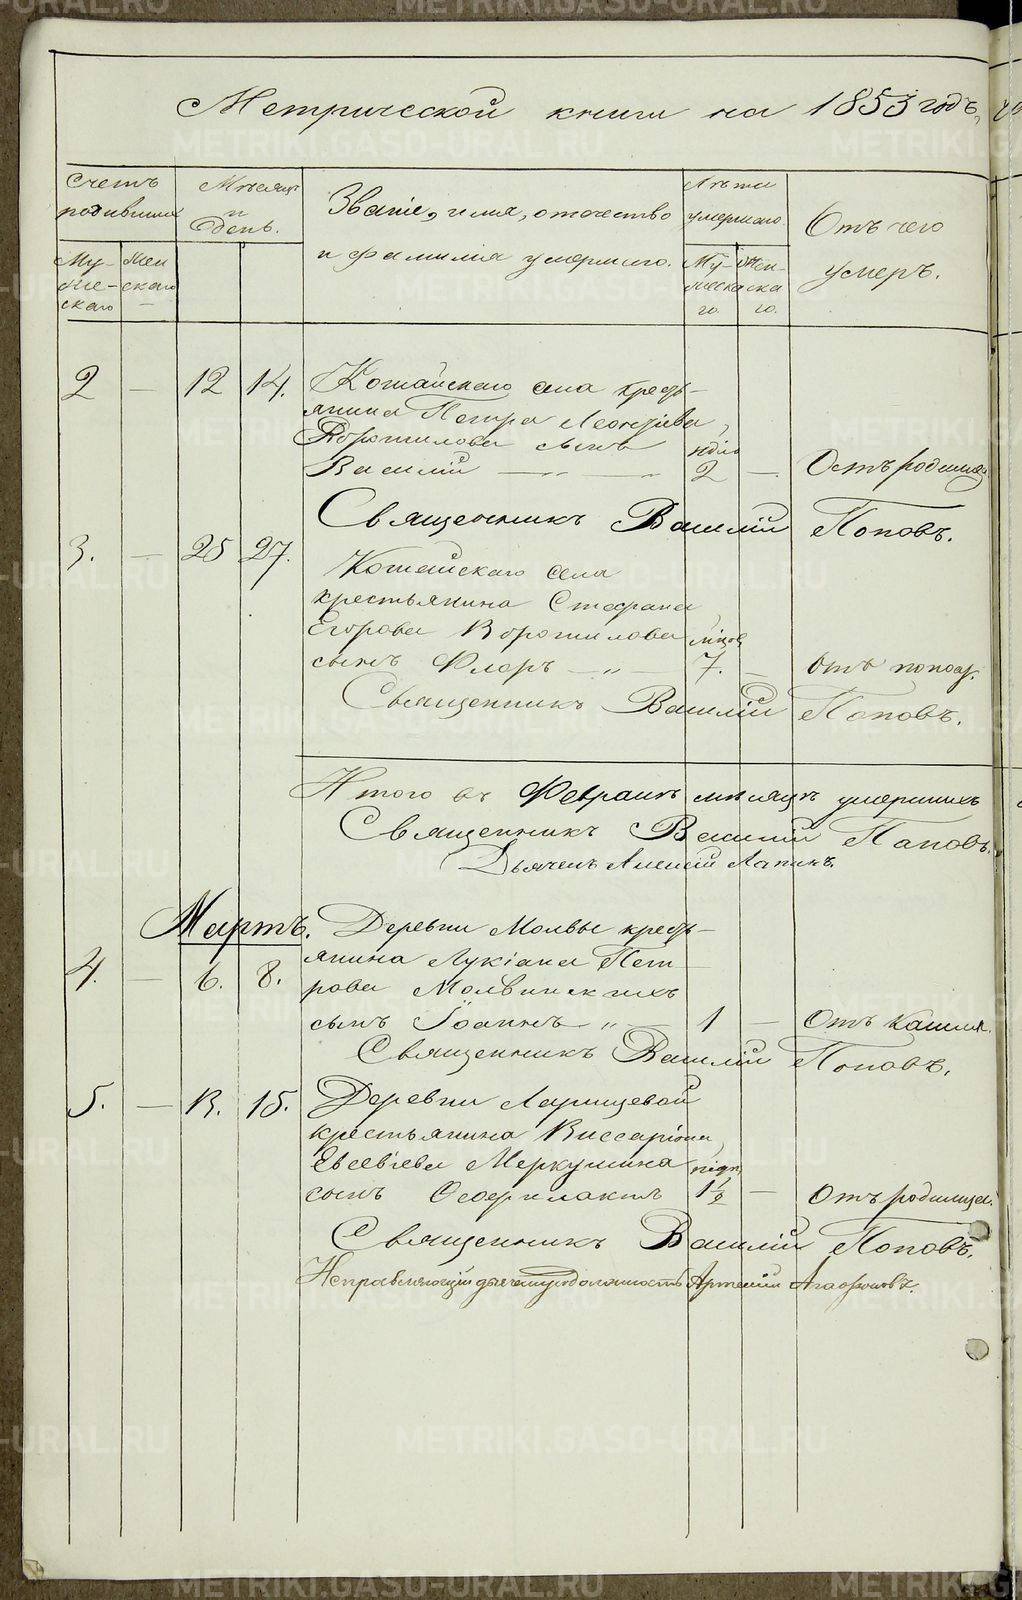 Метрической книги на 1853 годъ,
Счетъ родившихъ
Муже-скаго
Жен скаго
Мѣсяцъ и день.
Званіе, имя, отчество
и фамилія умершаго.
Лѣта умершаго
Му-жеска го.
Жен-ска го.
Отъ чего
умеръ.
2 — 12 14. Кошайскаго села кресть-
янина Петра Леонтіева,
Ворошилова сынъ нѣдль
Василій — „ — 2 — Отъ родимца
Священникъ Василій Поповъ.
3. — 25 27. Кошайскаго села
крестьянина Стефана
Егорова Ворошилова мѣсцов
сынъ Флоръ — „ — 7. — Отъ поноса.
Священникъ Василій Поповъ.
Итого въ Февралѣ мѣсяцѣ умершихъ
Священникъ Василій Поповъ.
Дьячекъ Алексій Лапинъ.
Мартъ. Деревни Молвы кресть-
4. — 6. 8. янина Лукіана Пет-
рова Молвинскихъ
сынъ Іоаннъ „ — 1 — Отъ кашля.
Священникъ Василій Поповъ.
5. — 13. 15. Деревни Ларищевой
крестьянина Виссаріона
Евсевіева Меркушина недѣл.
сынъ Феофилактъ 1½ — Отъ родимца.
Священникъ Василій Поповъ.
Исправляющій дьяческую должность Артемій Агафоновъ.
METRIKI.GASO-URAL.RU